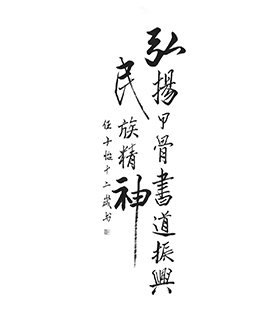 弘揚甲骨書道振興
民族精神
任子怡十二歲书